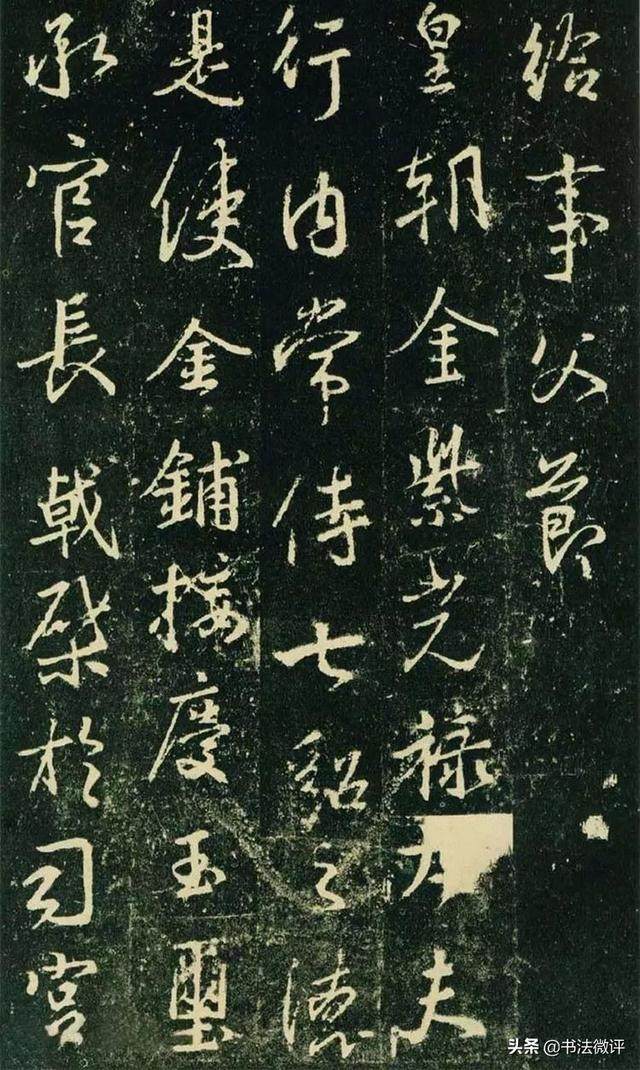 給事父節
皇朝金紫光祿大夫
行內常侍七貂之德
是使金鋪接慶玉璽
承官長戟棨於司宮
头条 @书法微评